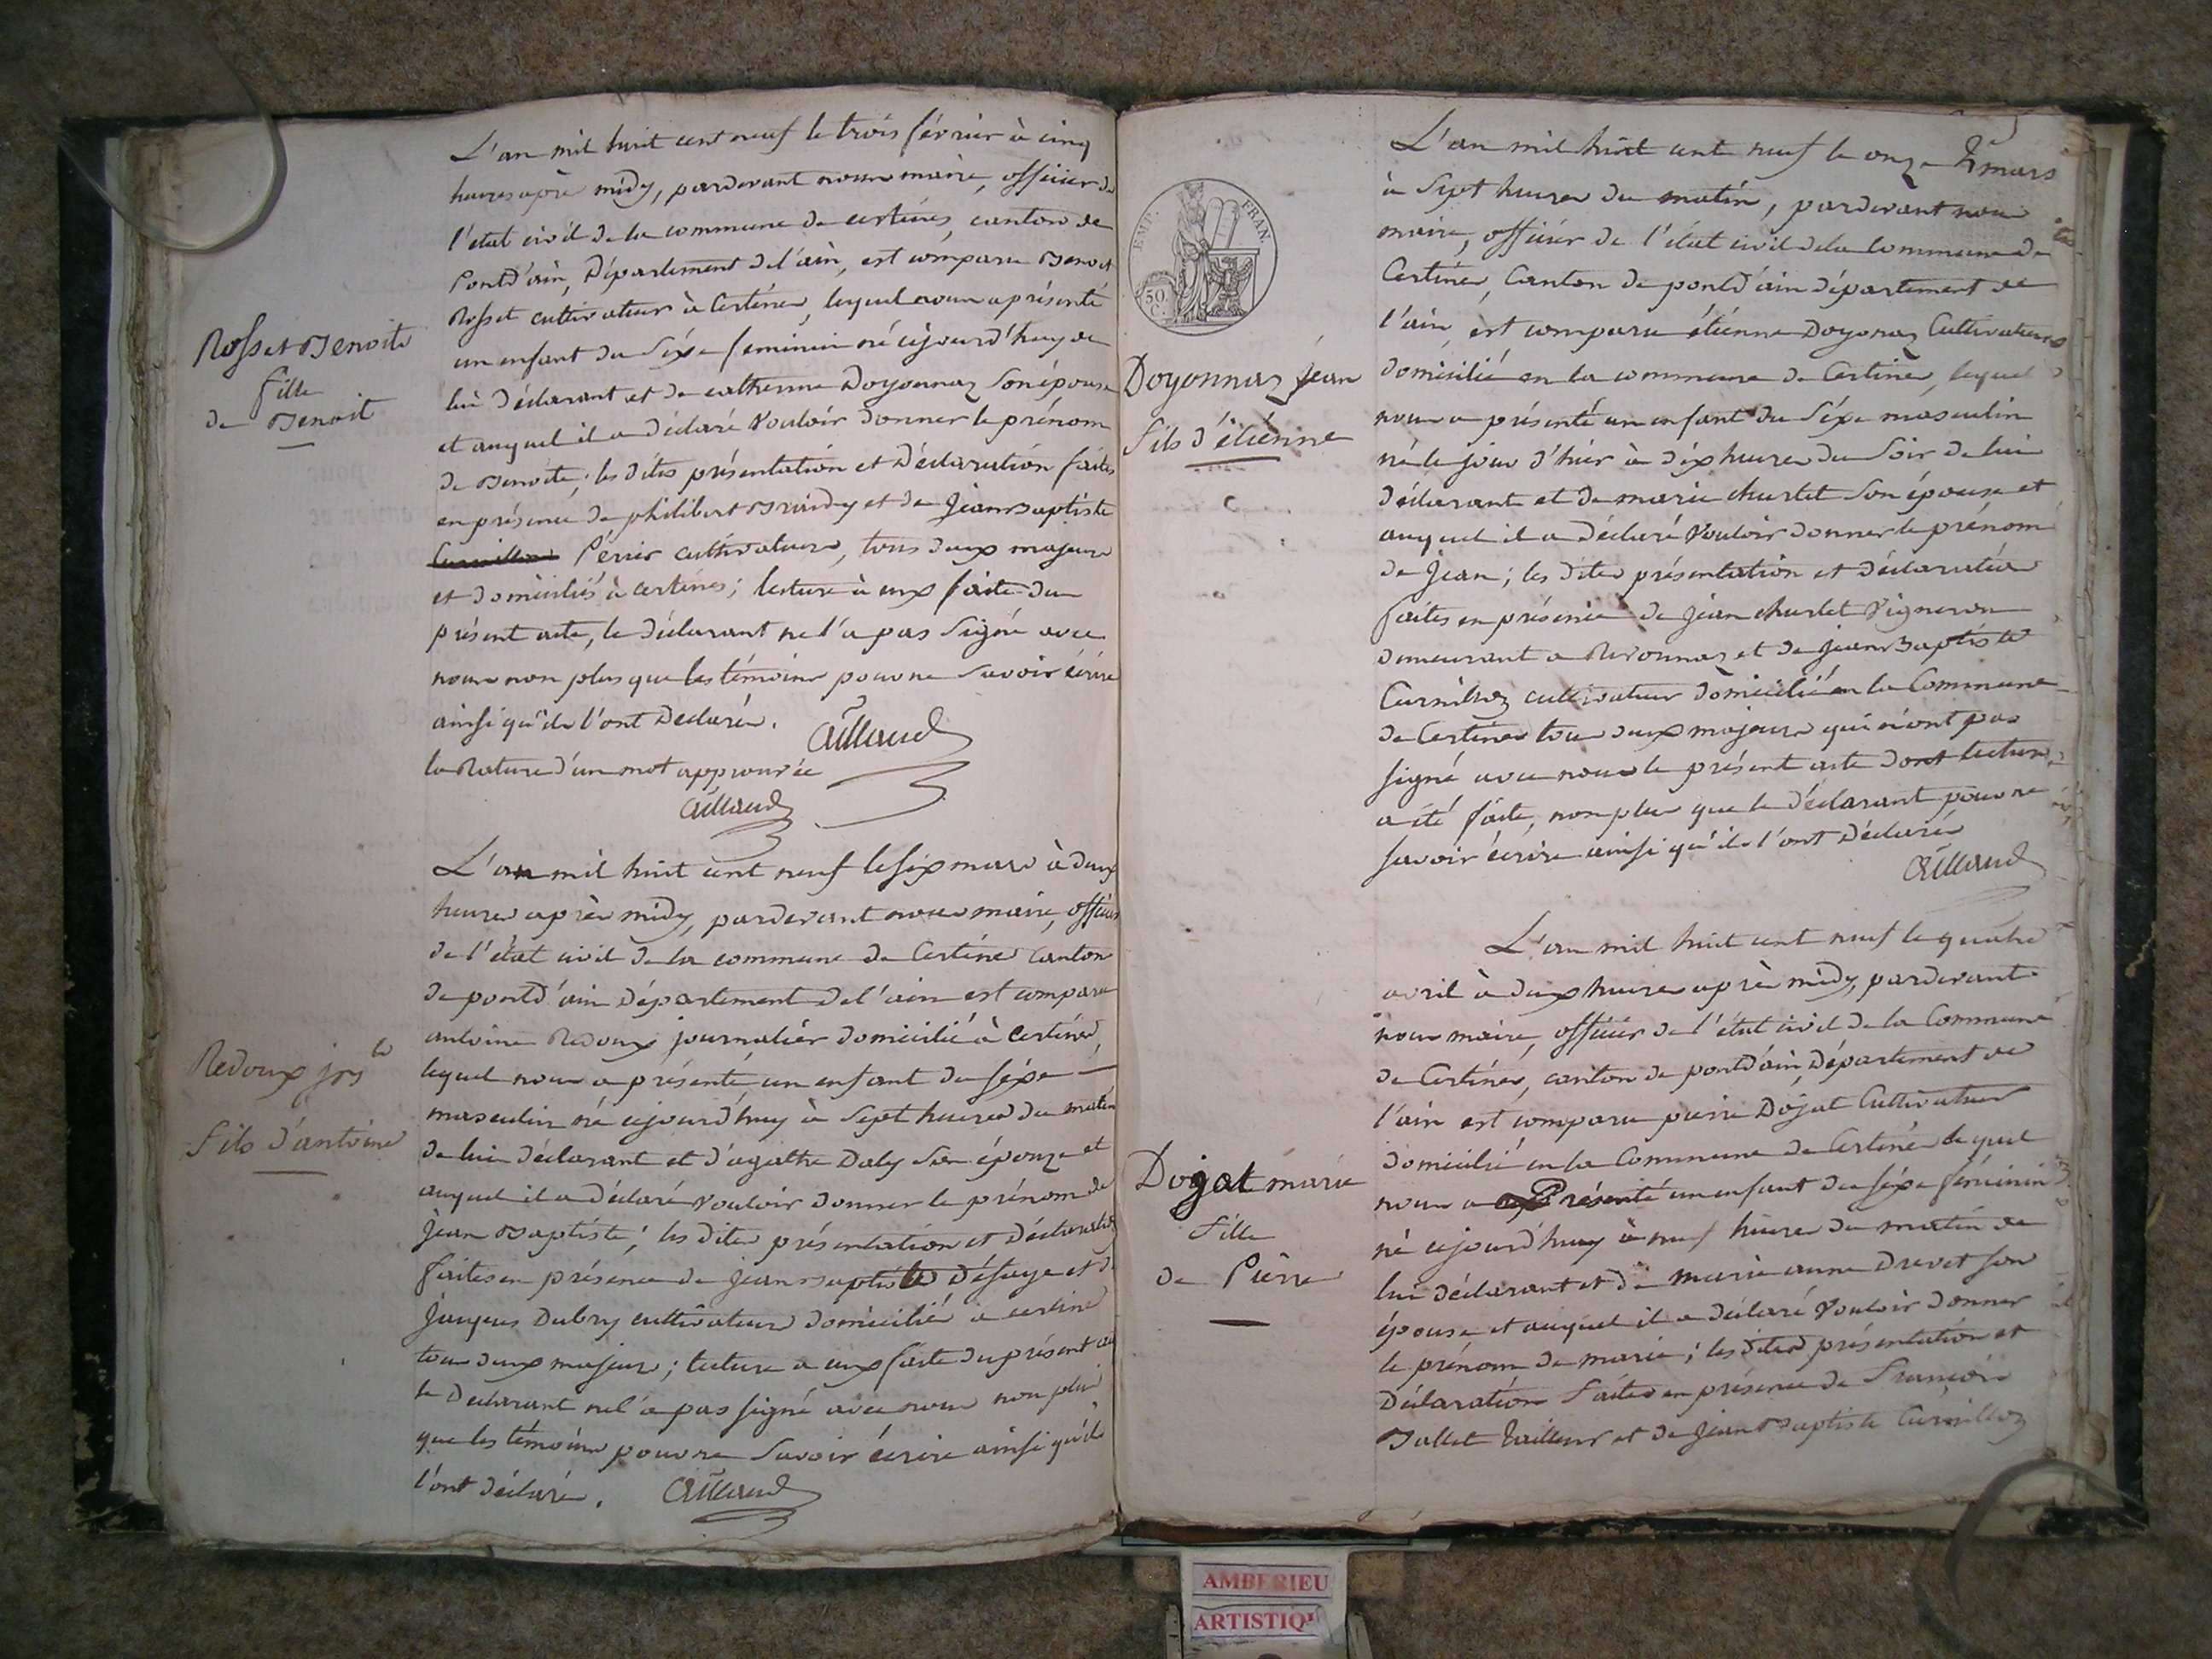 L'an mil huit cent neuf le trois février à cinq
heures après midy, pardevant nous maire, officier de
l'état civil de la commune de certines, canton de
Pontd'ain, Département de l'ain, est comparu Benoit
Rosset cultivateur à Certines, lequel nous a présenté
un enfant du Séxe feminin né cejourd'huy de
lui déclarant et de catherine Doyonnaz son épouse
et auquel il a déclaré vouloir donner le prénom
de Benoite; les dites présentation et Déclaration faites
en présence de philibert et de Jean Baptiste
Périer cultivateurs, tous deux majeurs
et domiciliés à certines; lecture à eux faite du
présent acte, le déclarant ne l'a pas Signé avec
nous non plus que les témoins pour ne Savoir écrire
ainsi qu'ils l'ont Declaré.
la Rature d'un mot approuvée
Rosset Benoite
fille
de Benoit
L'an mil huit cent neuf le six mars à deux
heures après midy, pardevant nous maire, officier
de l'état civil de la commune de Certines Canton
de pontd'ain Département de l'ain est comparu
antoine Redoux journalier domicilié à Certines,
lequel nous a présenté un enfant du séxe
masculin né cejourd'huy à Sept heures du matin
de lui déclarant et d'agathe Daby Son épouze et
auquel il a déclaré vouloir donner le prénom de
Jean Baptiste; les dites présentation et déclaration
faites en présence de Jean Baptiste Désaye et de
Jacques Dubry cultivateurs domiciliés a certines
tous deux majeurs; lecture a eux faite du présent acte
le Declarant ne l'a pas signé avec nous non plus
que les témoins pour ne Savoir écrire ainsi qu'ils
l'ont déclaré.
Redoux jn bte
fils d'antoine
EMP. FRAN.
50 C.
L'an mil huit cent neuf le onze mars
à Sept heures du matin, pardevant nous
maire, officier de l'état civil de la Commune de
Certines, Canton de pontd'ain département de
l'ain, est comparu étiénne Doyonaz Cultivateur
domicilié en la commune de Certines, lequel
nous a présenté un enfant du Séxe masculin
né le jour d'hier à dix heures du Soir de lui
déclarant et de marie churlet Son épouse et
auquel il a déclaré vouloir donner le prénom
de Jean; les dites présentation et déclaration
faites en présence de Jean churlet Vigneron
demeurant a Revonnaz et de Jean Baptiste
Curnilloz cultivateur domicilié en la Commune
de Certines tous deux majeurs qui n'ont pas
signé avec nous le présent acte dont lecture
a été faite, non plus que le déclarant pour ne
savoir écrire ainsi qu'ils l'ont déclaré
Doyonnaz Jean
fils d'étiénne
L'an mil huit cent neuf le quatre
avril à deux heures après midy, pardevant
nous maire, officier de l'état civil de la Commune
de Certines, canton de pontd'ain, Département de
l'ain est comparu pierre Dojat Cultivateur
domicilié en la Commune de Certines lequel
nous a Présenté un enfant du séxe féminin
né cejourd'huy à neuf heures du matin de
lui déclarant et de marie anne Drevet son
épouse et auquel il a déclaré vouloir donner
le prénom de marie; les dites présentation et
Déclaration faites en présence de François
Ballet tailleur et de Jean Baptiste Curnilloz
Dojat marie
fille
de Pierre
AMBERIEU
ARTISTIQU